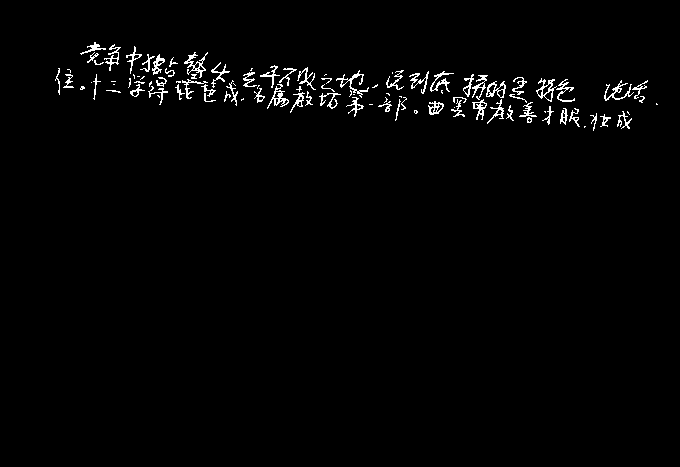 竞角中独占鳌头立于不败之地,说到底拼的是特色 沈活.
位。十三学得琵琶成.名属教坊第一部。曲罢曾教善才服.妆成